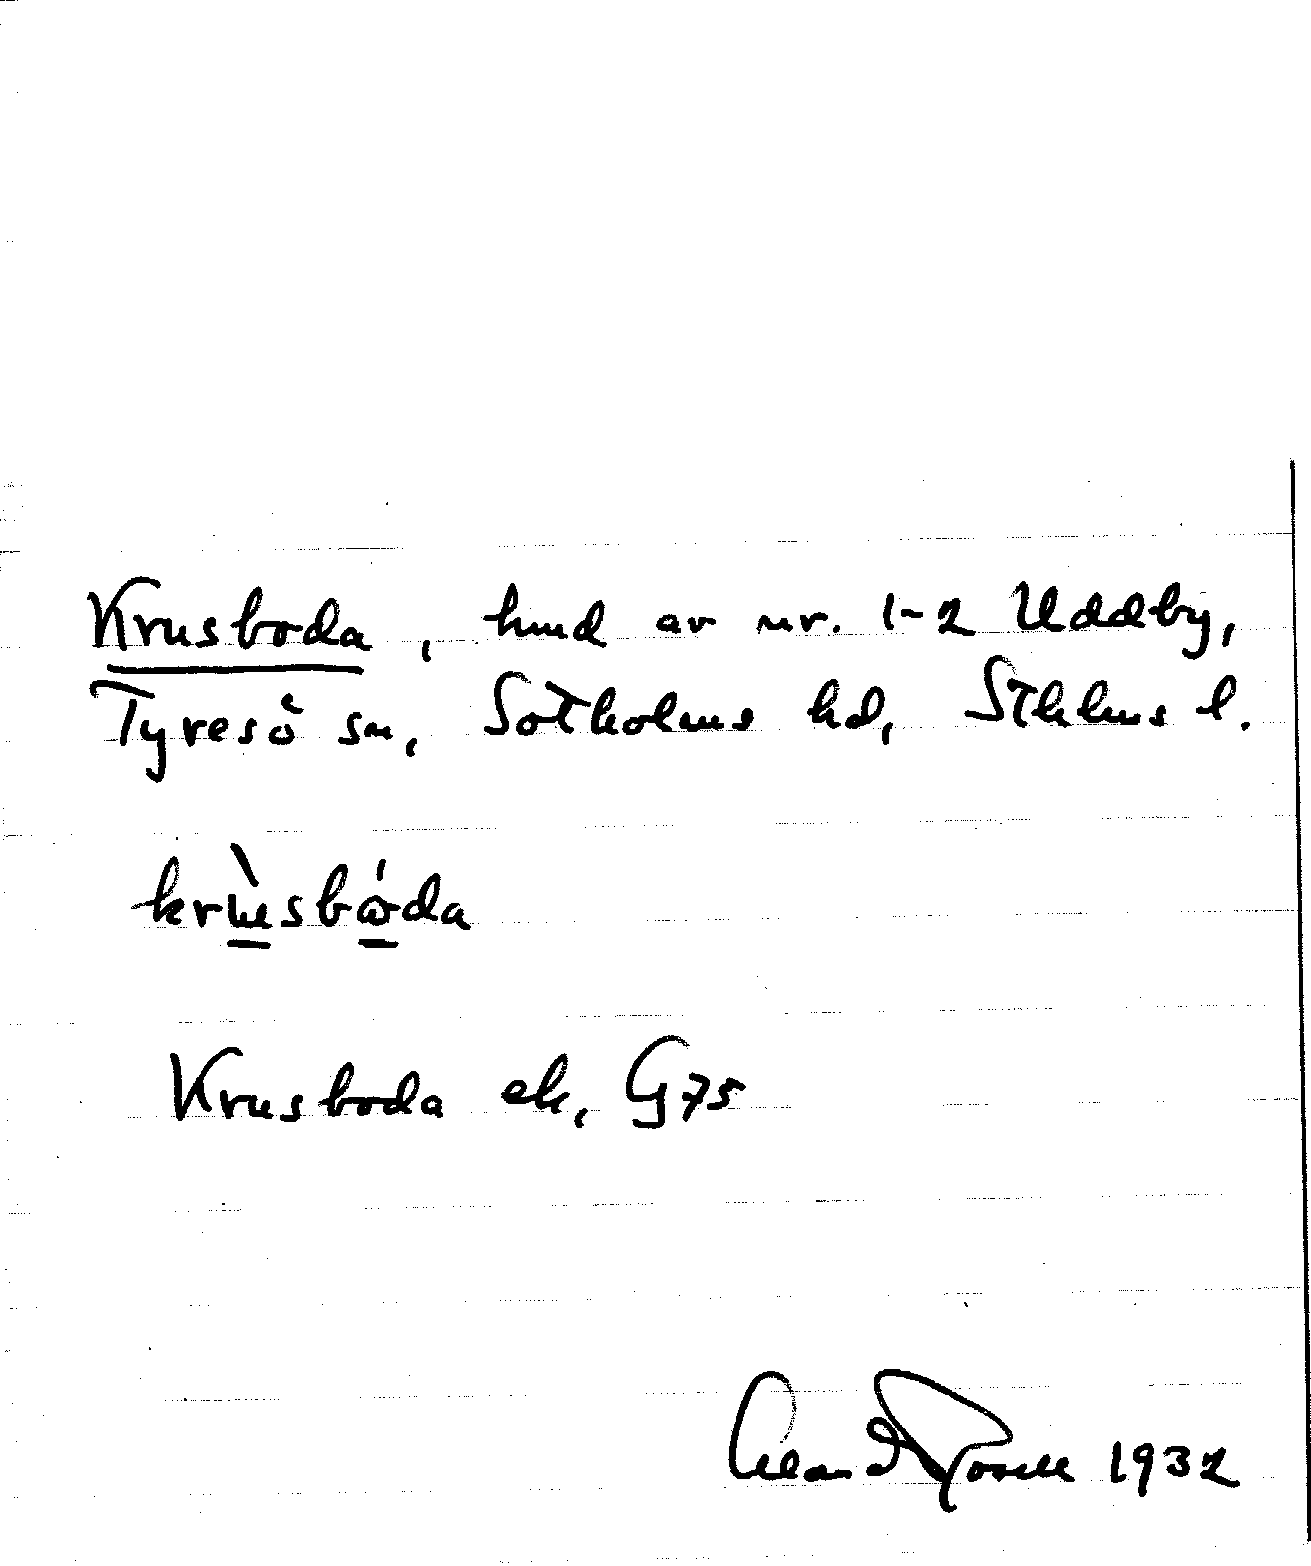 Krusboda, hmd av nr. 1-2 Uddby,
Tyresö sn, Sotholms hd, Sthlms l.
krùsbóda
Krusboda ek, G75
1932